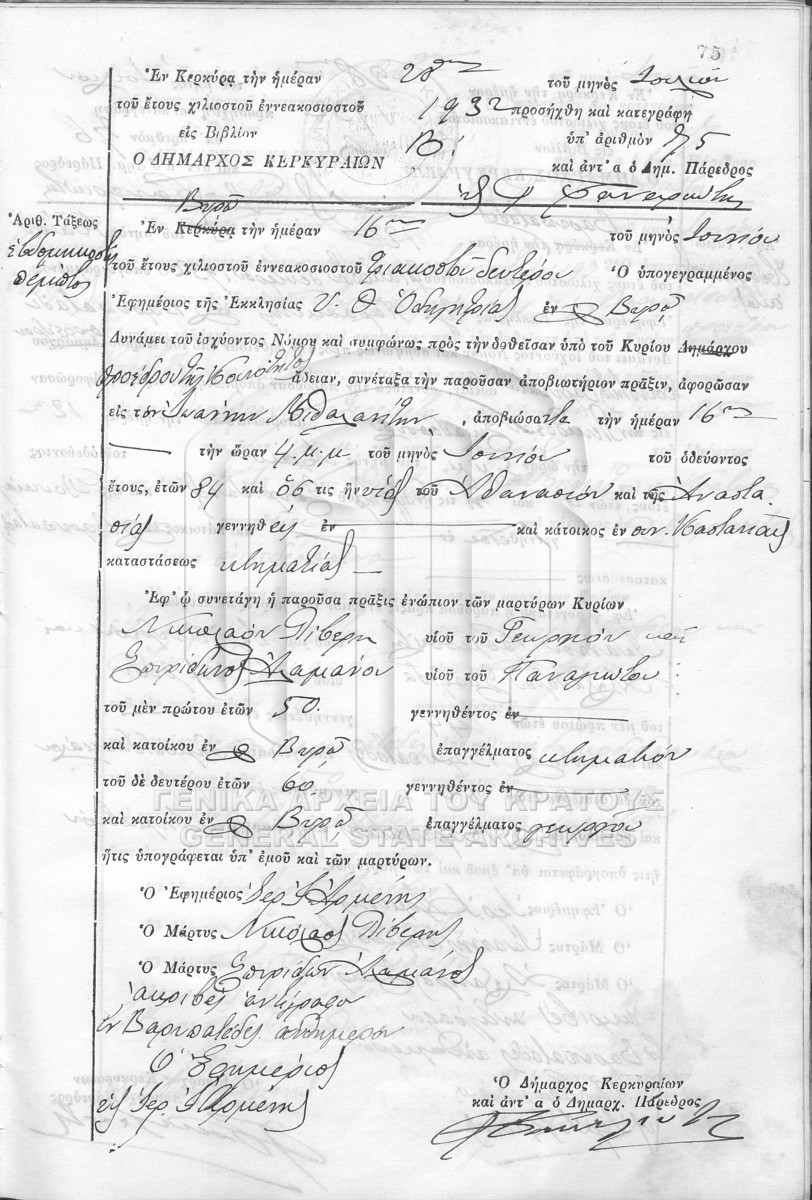 75
Ἐν Κερκύρᾳ τὴν ἡμέραν 28ην τοῦ μηνὸς Ἰουλίου
τοῦ ἔτους χιλιοστοῦ ἐννεακοσιοστοῦ 1932 προσήχθη καὶ κατεγράφη
εἰς Βιβλίον Β! ὑπ' ἀριθμὸν 75
Ο ΔΗΜΑΡΧΟΣ ΚΕΡΚΥΡΑΙΩΝ καὶ ἀντ' α ὁ Δημ. Πάρεδρος
Βυρῷ
Ἀριθ. Τάξεως
ἑβδομηκοστὴ
πέμπτος
Ἐν Κερκύρᾳ τὴν ἡμέραν 16ην τοῦ μηνὸς Ἰουνίου
τοῦ ἔτους χιλιοστοῦ ἐννεακοσιοστοῦ τριακοστοῦ δευτέρου Ὁ ὑπογεγραμμένος
Ἐφημέριος τῆς Ἐκκλησίας Υ. Θ. Ὁδηγητρίας ἐν Βυρῷ
Δυνάμει τοῦ ἰσχύοντος Νόμου καὶ συμφώνως πρὸς τὴν δοθεῖσαν ὑπὸ τοῦ Κυρίου Δημάρχου
Προέδρου τῆς Κοινότητος ἄδειαν, συνέταξα τὴν παροῦσαν ἀποβιωτήριον πρᾶξιν, ἀφορῶσαν
εἰς τὸν Ἰωάννην, ἀποβιώσαντα τὴν ἡμέραν 16ην
τὴν ὥραν 4 μ.μ. τοῦ μηνὸς Ἰουνίου τοῦ ὁδεύοντος
ἔτους, ἐτῶν 84 καὶ ὅς τις ἦν υἱὸς τοῦ Ἀθανασίου καὶ τῆς Ἀναστα
σίας γεννηθεὶς ἐν καὶ κάτοικος ἐν συν. Καστανιᾶς
καταστάσεως κτηματίας
Ἐφ' ᾧ συνετάγη ἡ παροῦσα πρᾶξις ἐνώπιον τῶν μαρτύρων Κυρίων
Νικολάου Λίβερη υἱοῦ τοῦ Γεωργίου καὶ
Σπυρίδωνος υἱοῦ τοῦ Παναγιώτου
τοῦ μὲν πρώτου ἐτῶν 50. γεννηθέντος ἐν
καὶ κατοίκου ἐν Βυρῷ ἐπαγγέλματος κτηματίου
τοῦ δὲ δευτέρου ἐτῶν 60 γεννηθέντος ἐν
καὶ κατοίκου ἐν Βυρῷ ἐπαγγέλματος γεωργοῦ
ἥτις ὑπογράφεται ὑπ' ἐμοῦ καὶ τῶν μαρτύρων.
ΓΕΝΙΚΑ ΑΡΧΕΙΑ ΤΟΥ ΚΡΑΤΟΥΣ
GENERAL STATE ARCHIVES
Ὁ Ἐφημέριος Ἱερ. Ἀρμένης
Ὁ Μάρτυς Νικόλαος Λίβερης
Ὁ Μάρτυς Σπυρίδων
ἀκριβὲς ἀντίγραφο
ἐν Βαρυπατάδες αὐθημερόν
Ὁ Ἐφημέριος
Ἱερ. Ἀρμένης
Ὁ Δήμαρχος Κερκυραίων
καὶ ἀντ' α ὁ Δημαρχ. Πάρεδρος